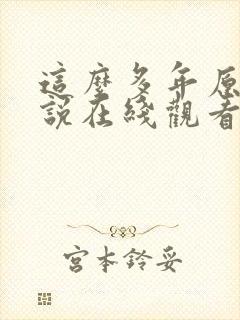 這麼多年原
說在綫觀看
宮本鈴妥